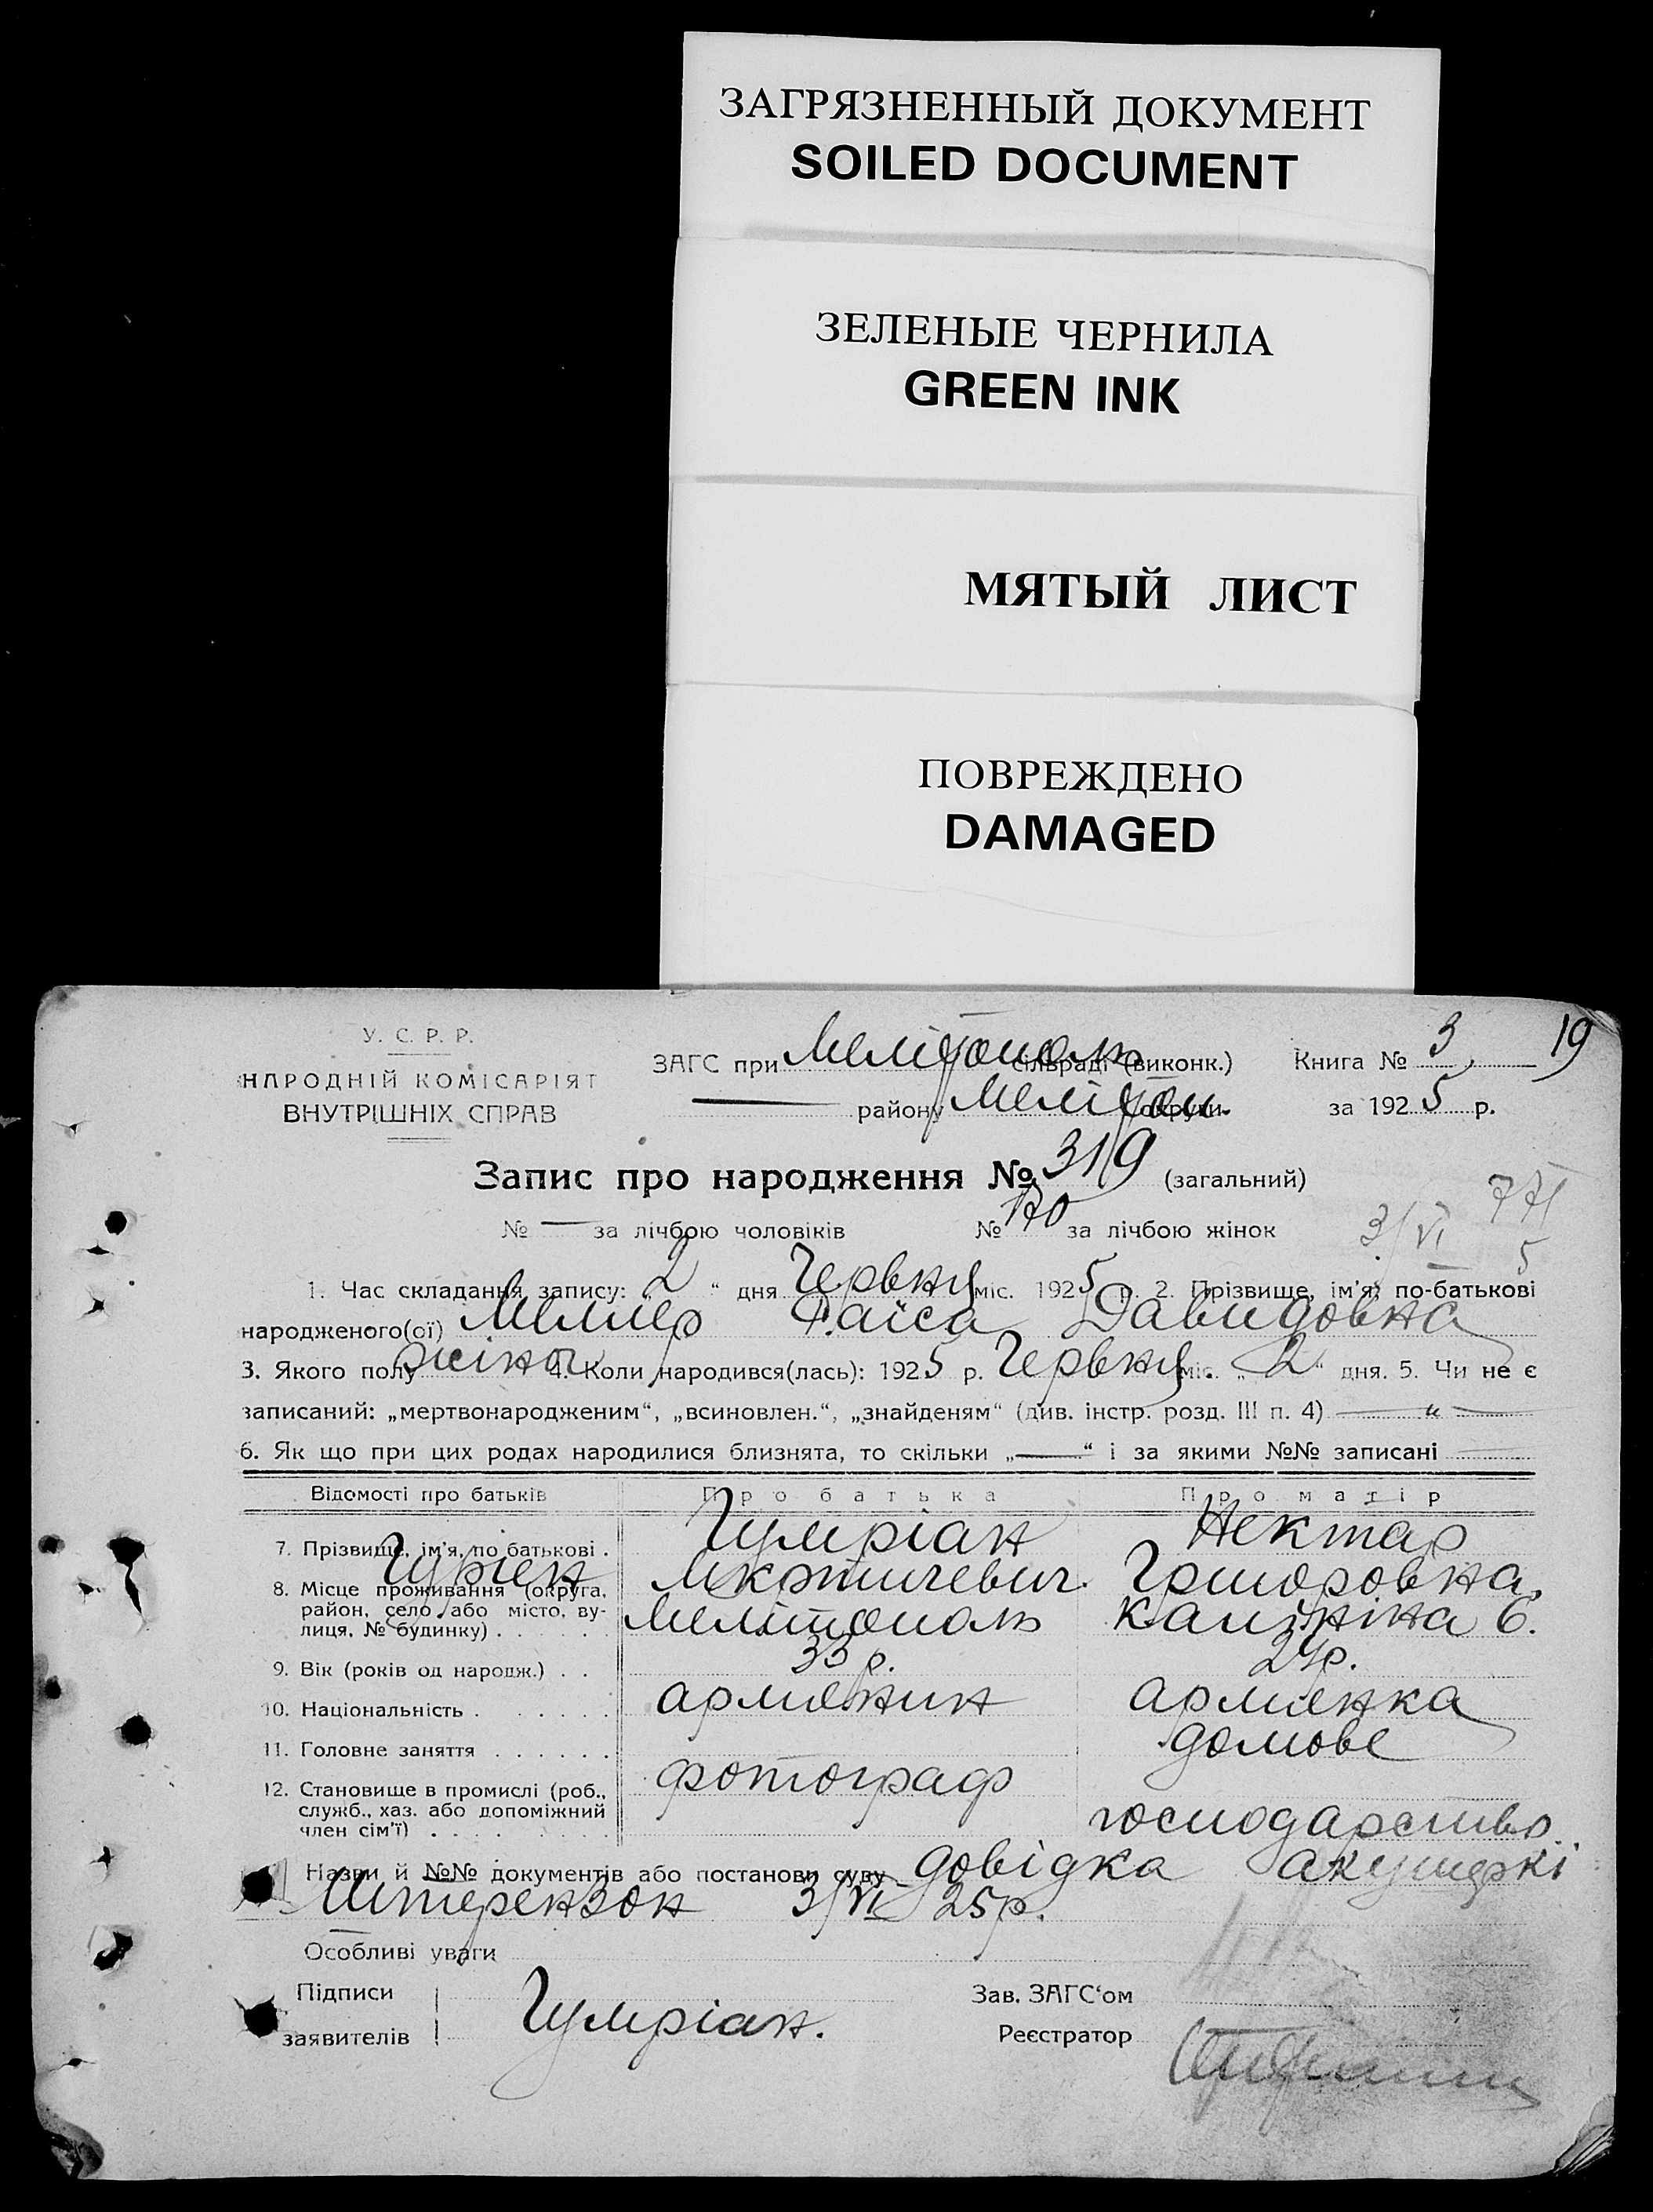 ЗАГРЯЗНЕННЫЙ ДОКУМЕНТ
SOILED DOCUMENT
ЗЕЛЕНЫЕ ЧЕРНИЛА
GREEN INK
МЯТЫЙ ЛИСТ
ПОВРЕЖДЕНО
DAMAGED
У. С. Р. Р.
НАРОДНІЙ КОМІСАРІЯТ
ВНУТРІШНІХ СПРАВ
ЗАГС при Мелітополь сільраді (виконк.) Книга № 3 19
району Мелітоп. округи за 1925 р.
Запис про народження № 319 (загальний)
№ — за лічбою чоловіків № 170 за лічбою жінок 3/VI 771
5
1. Час складання запису: „2“ дня Червня міс. 1925 р. 2. Прізвище, ім'я, по-батькові
народженого(ої) Меллер Раїса Давидовна
3. Якого полу жіноч 4. Коли народився(лась): 1925 р. Червня міс. „2“ дня. 5. Чи не є
записаний: „мертвонародженим“, „всиновлен.“, „знайденям“ (див. інстр. розд. III п. 4) — „ —
6. Як що при цих родах народилися близнята, то скільки „—“ і за якими №№ записані
Відомості про батьків Про батька Про матір
7. Прізвище, ім'я, по батькові . Гумріан Нектар
Гурген Мкртичевич. Григоровна.
8. Місце проживання (округа, район, село або місто, вулиця, № будинку) . Мелітополь Калініна 6.
9. Вік (років од народж.) . . 33 р. 24р.
10. Національність . армянин армянка
11. Головне заняття . домове
12. Становище в промислі (роб., служб., хаз. або допоміжний член сім'ї) . фотограф господарство
Назви й №№ документів або постанови суду довідка акушеркі
Штерензон 3/VI 25р.
Особливі уваги
Підписи Зав. ЗАГС'ом
заявителів Гумріан. Реєстратор